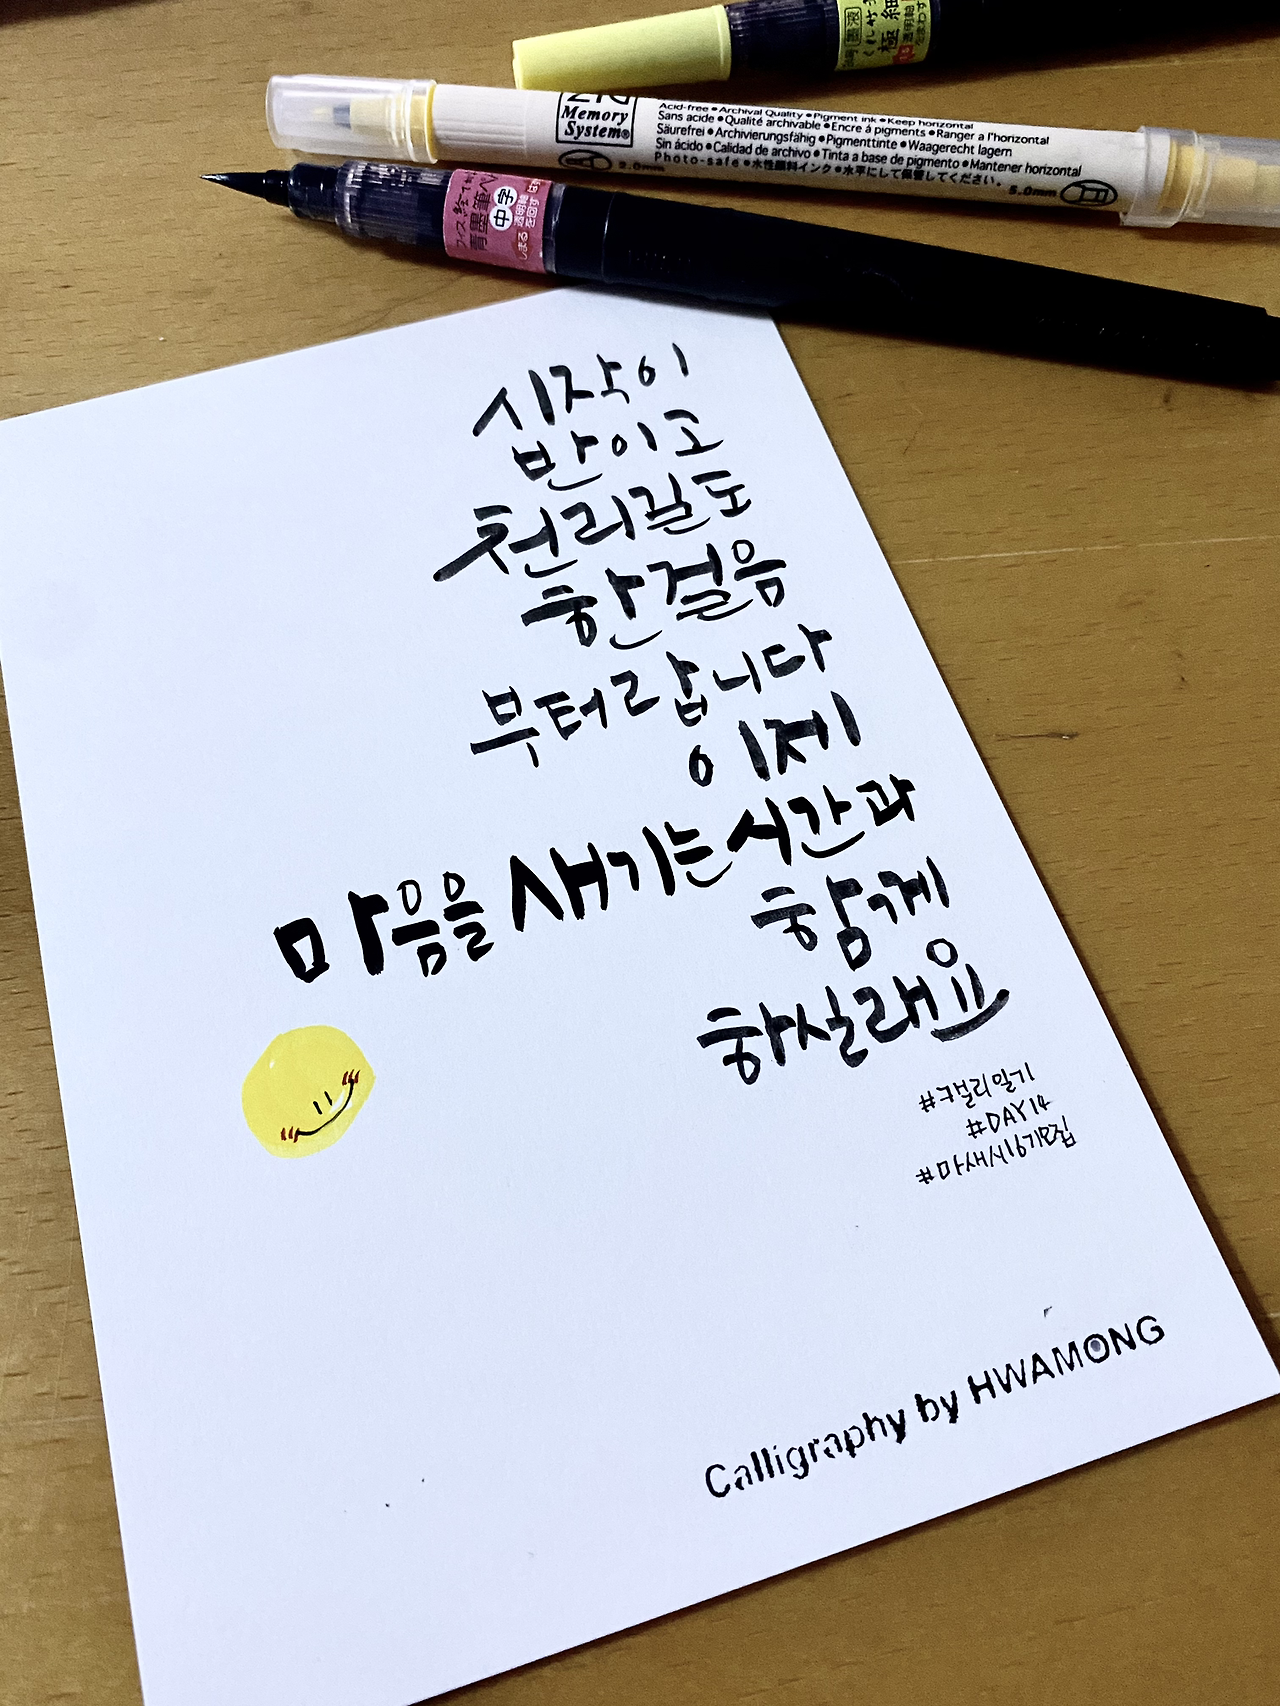 極細
Memory
System®
Acid-free • Archival Quality • Pigment ink • Keep horizontal
Sans acide • Qualité archivable • Encre à pigments • Ranger a l'horizontal
Säurefrei • Archivierungsfähig • Pigmenttinte • Waagerecht lagern
Sin ácido • Calidad de archivo • Tinta a base de pigmento • Mantener horizontal
Photo-safe • 水性顔料インク • 水平にして保管してください。
5.0mm
青墨筆ペン
中字
透明軸
を回す
시작이
반이고
천리길도
한걸음
부터랍니다
이제
마음을 새기는 시간과
함께
하실래요
#캘리일기
#DAY14
#마새시16기모집
Calligraphy by HWAMONG